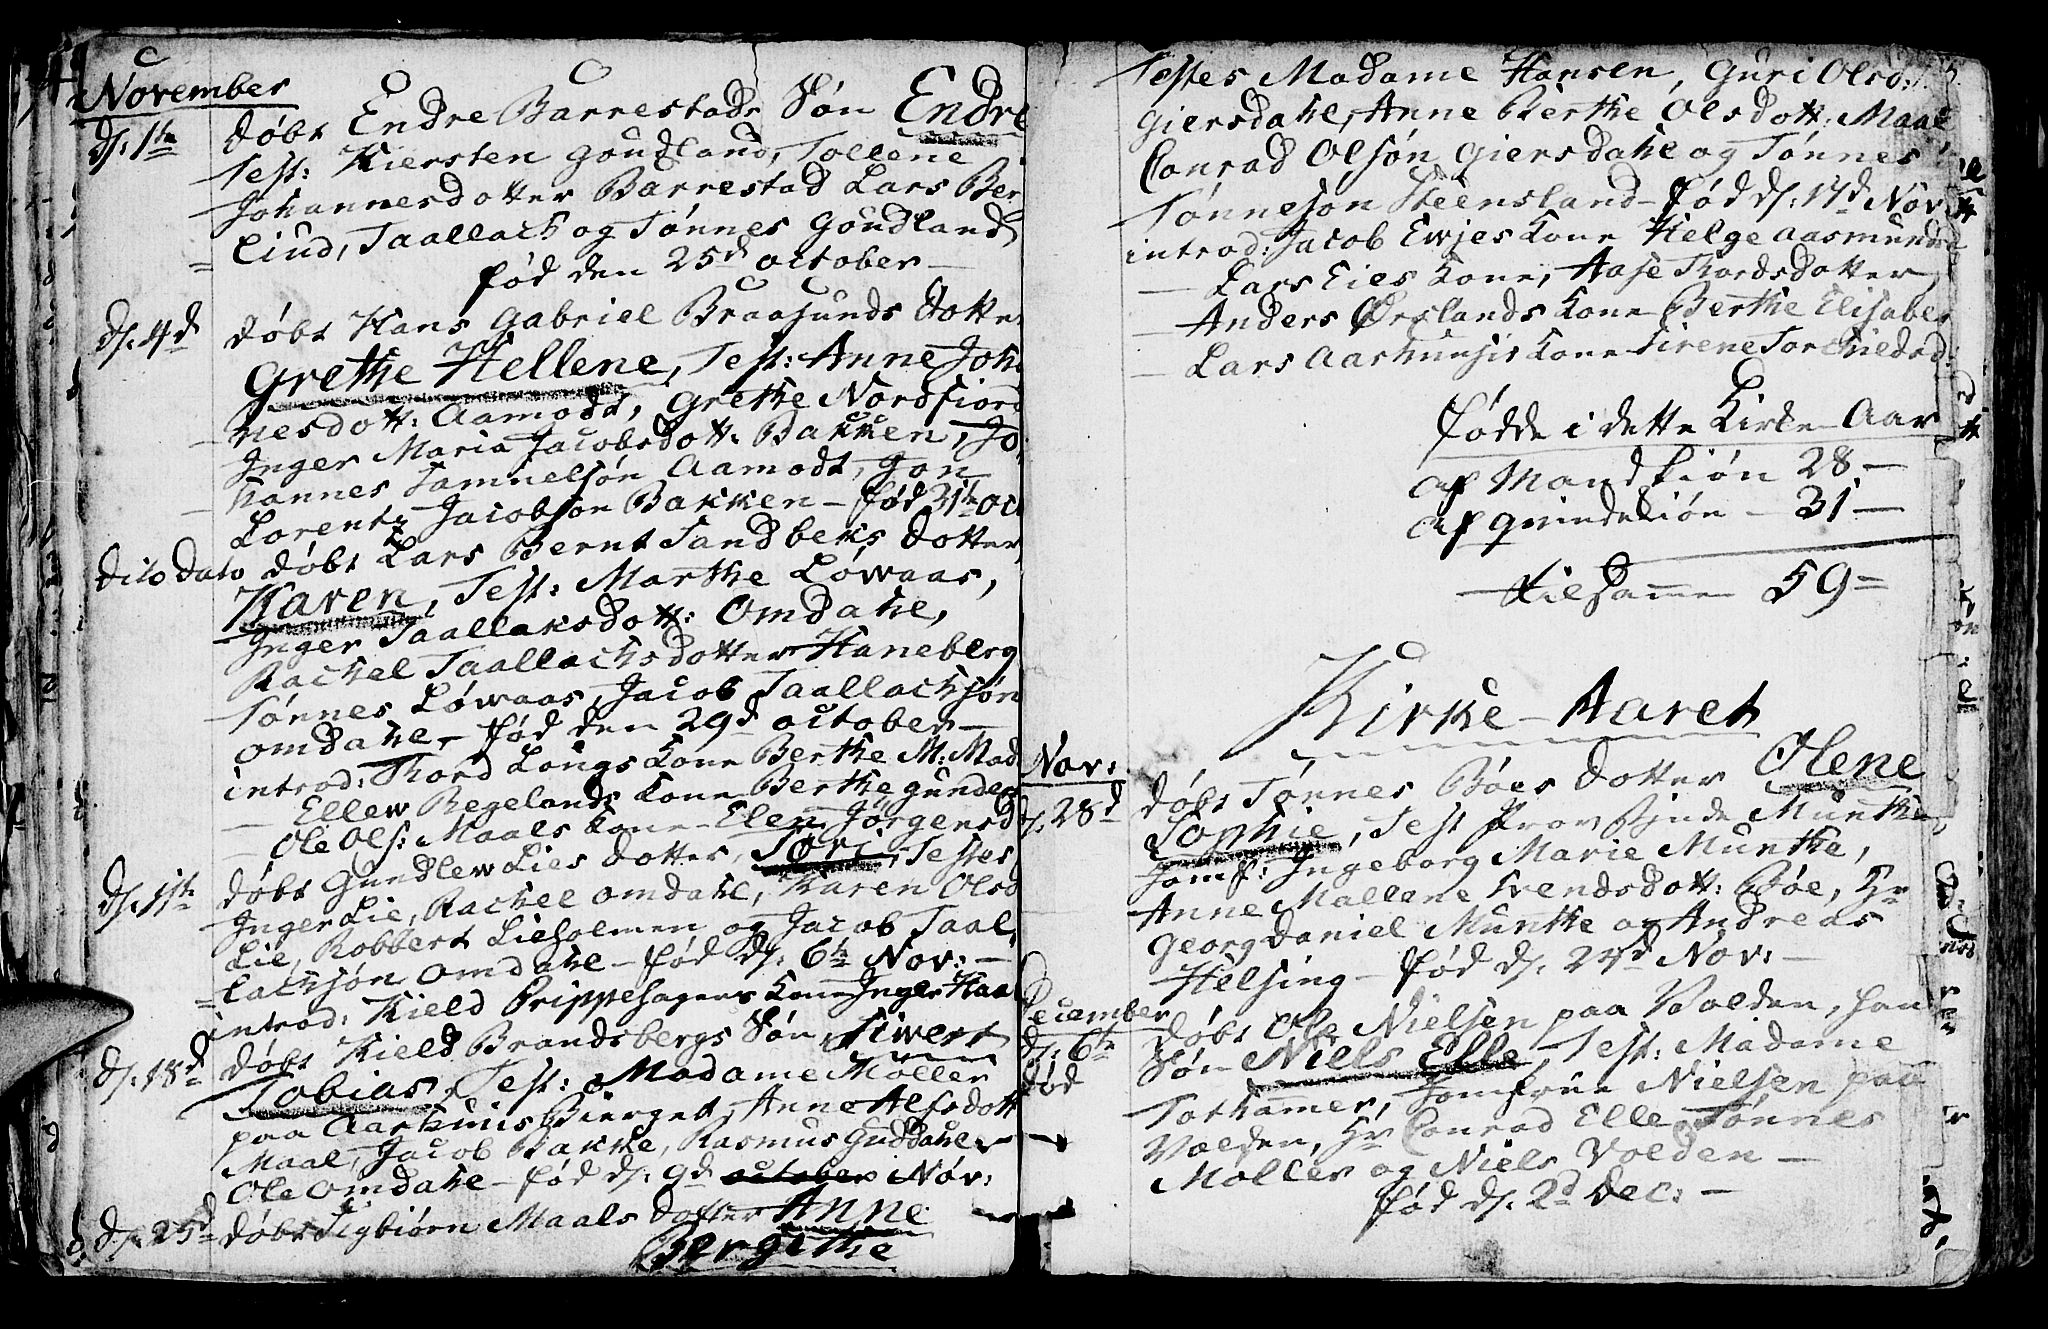 November
d/: 1te døbt Endre Barrestads Søn Endre
Test: Kiersten Goudland, Tollene
Johannesdotter Barrestad Lars Ber
Liud, Taallach og Tønnes Goudland
= fød den 25d october —
d/: 4d døbt Hans Gabriel Braasunds Dotte
Grethe Hellene, Test: Anne Joh
nesdott: Aamodt, Grethe Nordfiord
Inger Maria Jacobsdott: Bakken, Jo
hannes Samuelsøn Aamodt, Jan
Lorentz Jacobsøn Bakken — fød 31te oct
Dito Dato døbt Lars Bernt Sandbeks Dotter
Karen, Test: Marthe Løwaas,
Inger Taallaksdott: Omdahl,
Rachel Taallachsdotter Haneberg
Tønnes Løwaas, Jacob Taallachsøn
omdahl, — fød den 29d october —
introd: Thord Longs Kone Berthe M: Mad
— Ellew Regelands Kone Berthe gunder
— Ole Ols: Maals Kone — Elen Jørgensd
d/: 11te døbt Gundlew Lies Dotter, Siri, Testes
Inger Lie, Rachel omdahl, Karen Olsd
Lie, Robbert Lieholmen og Jacob Taal
= lachsøn omdahl — fød d/: 6te Nov: —
introd: Kield Prippehagens Kone Inger Haa
d/: 18d døbt Kield Brandsbergs Søn, Siwert
Tobias, Test: Madame Møller
paa Aarhuus Bierget, Anne Alfsdott
Maal, Jacob Bakke, Rasmus Guddahl
Ole omdahl — fød d/: 9d october Nov:
d/: 25d døbt Sigbiørn Maals Dotter Anne
Bergithe
Testes Madame Hansen, Guri Olsd:
Giersdahl, Anne Berthe Olsdott: Maal
Conrad Olsøn Giersdahl og Tønnes
Tønnesøn Steensland — fød d/: 17d Nov:
introd: Jacob Ewjes Kone Helge Aasmundsd
— Lars Eies Kone, Aase Thordsdotter
— Anders Ørslands Kone Berthe Elisabet
— Lars Aarhuusis Kone Sirene Torkieldsd:
fødde i dette Kirke-Aar
af Mandkiøn 28 —
af qvindekiøn — 31 —
tilsammen 59 =
Kirke-Aaret
Nov:
d/: 28d døbt Tønnes Bøes Dotter Olene
Sophie, Test Frov Gunde Munthe,
Jomf: Ingeborg Marie Munthe,
Anne Mallene Svendsdott: Bøe, Hr
Georg Daniel Munthe og Andreas
Helsing — fød d/: 24d Nov: —
December
d/: 6te døbt Ole Nielsen paa Volden, han
død Søn Niels Elle, Test: Madame
Tothammer, Jomfrue Nielsen paa
Volden, Hr Conrad Elle, Tønnes
Møller og Niels Volden —
fød d/: 2d Dec: —